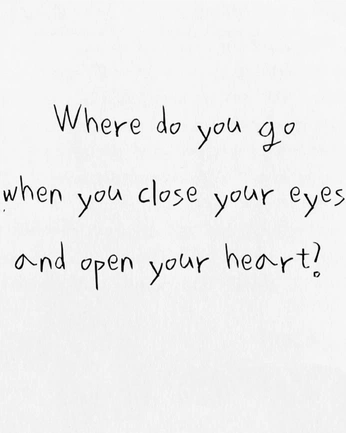 Where do you go
when you close your eyes
and open your heart?